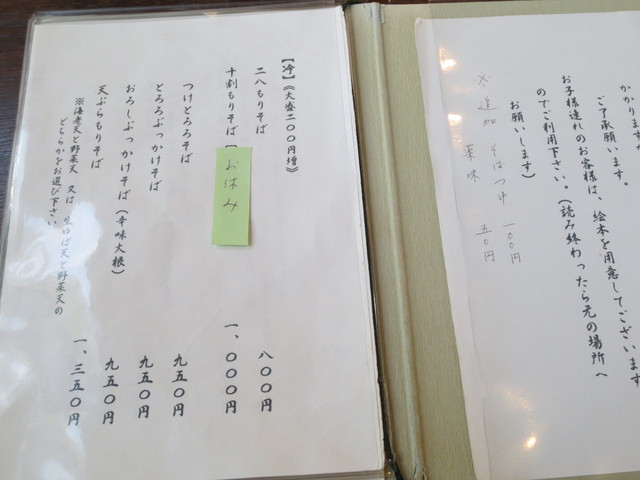 かかります。
ご了承願います。
お子様連れのお客様は、絵本を用意してございます
のでご利用下さい。(読み終わったら元の場所へ
お願いします)
※追加 そばつけ 一〇〇円
薬味 五〇円
【冷】《大盛二〇〇円増》
二八もりそば 八〇〇円
十割もりそば【 お休み 一、〇〇〇円
つけとろろそば 九五〇円
とろろぶっかけそば 九五〇円
おろしぶっかけそば(辛味大根) 九五〇円
天ぷらもりそば 一、三五〇円
※海老天と野菜天 又は 生ゆば天と野菜天の
どちらかをお選び下さい